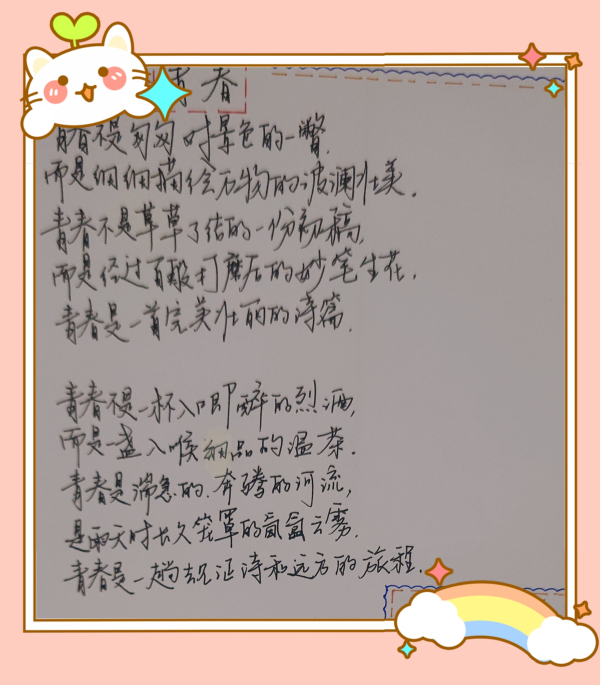 青春
青春不是匆匆对景色的一瞥,
而是细细描绘万物的波澜壮美.
青春不是草草了结的一份初稿,
而是经过百般打磨后的妙笔生花.
青春是一首完美壮丽的诗篇.
青春不是一杯入口即醉的烈酒,
而是一盏入喉细品的温茶.
青春是湍急的、奔腾的河流,
是雨天时长久笼罩的氤氲云雾.
青春是一趟去见证诗和远方的旅程.